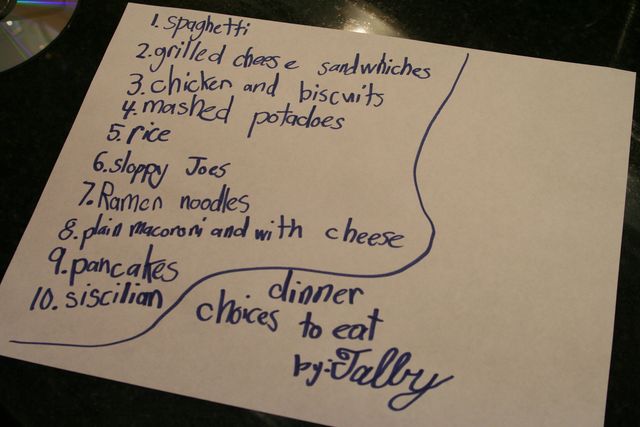 1. spaghetti
2. grilled cheese sandwhiches
3. chicken and biscuits
4. mashed potadoes
5. rice
6. sloppy Joes
7. Ramen noodles
8. plain macoroni and with cheese
9. pancakes
10. siscilian
dinner
choices to eat
by: Talby